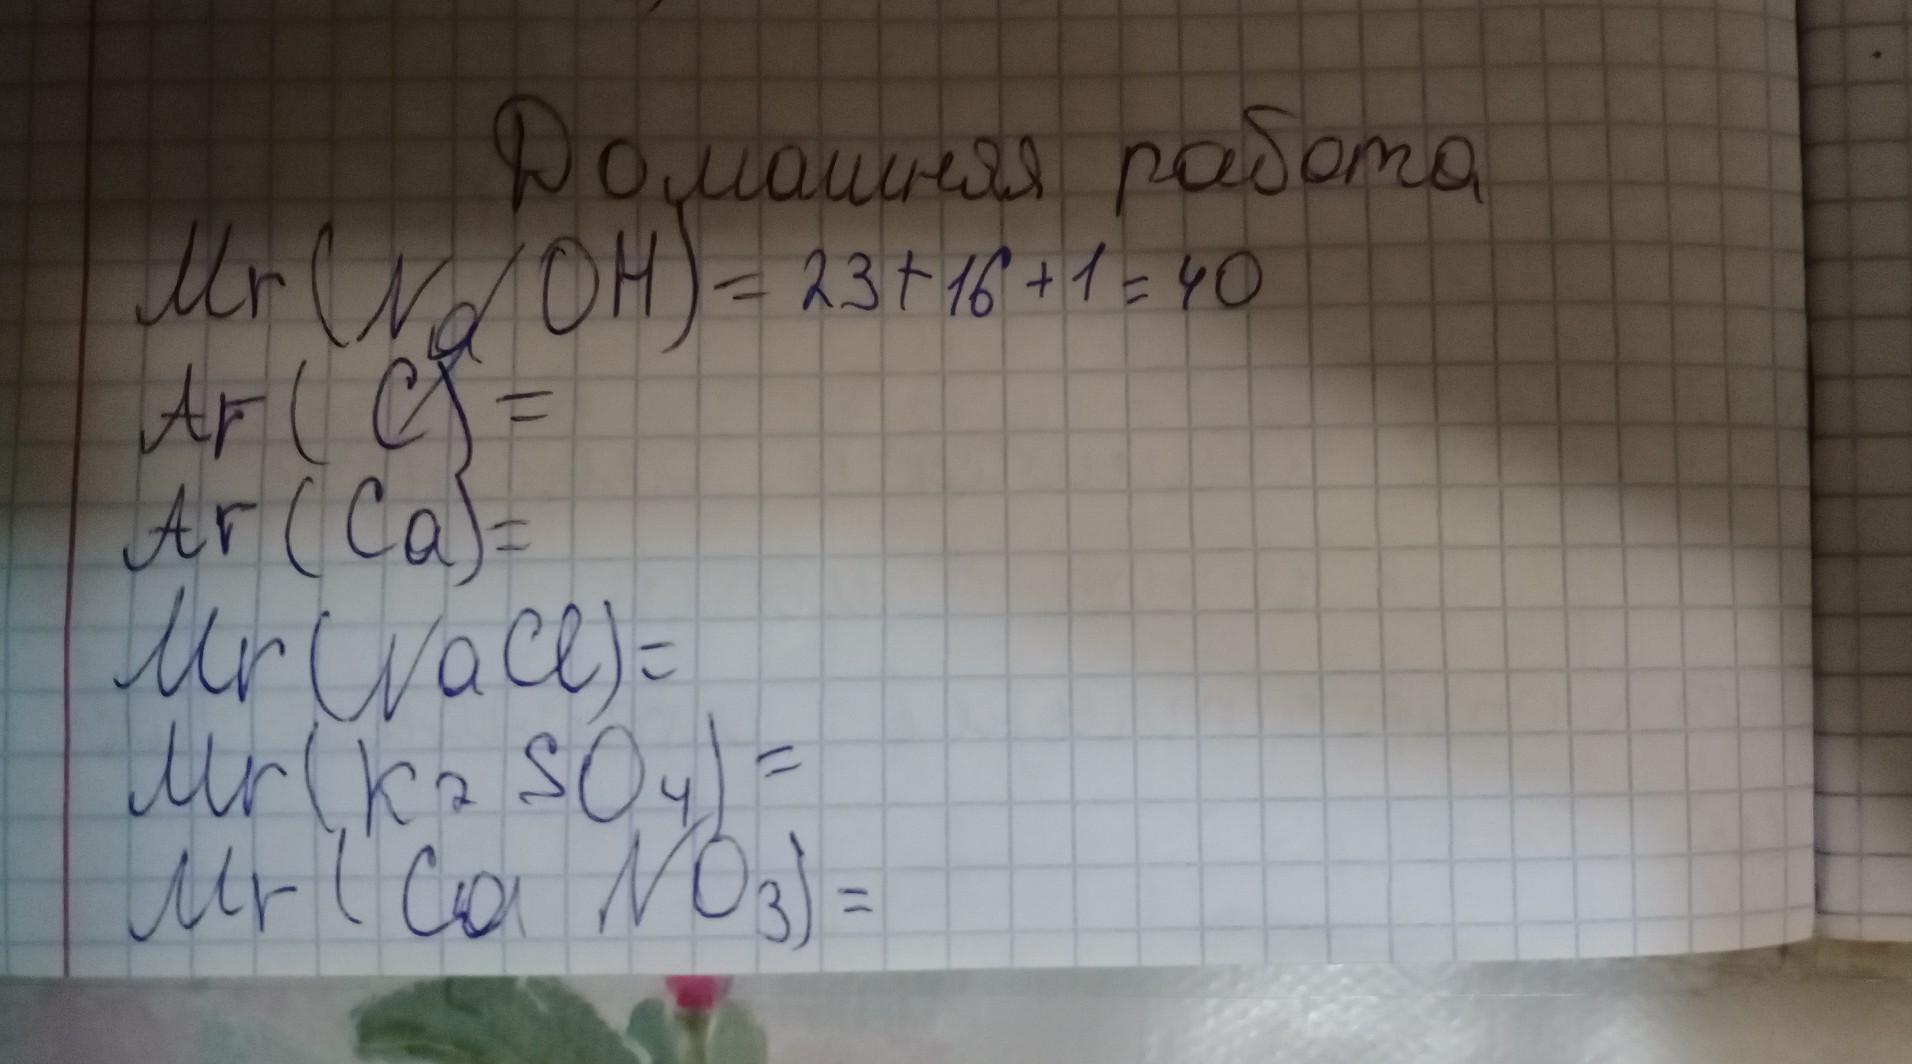 Домашняя работа
Mr(NaOH) = 23 + 16 + 1 = 40
Ar(C) =
Ar(Ca) =
Mr(NaCl) =
Mr(K2SO4) =
Mr(Ca NO3) =